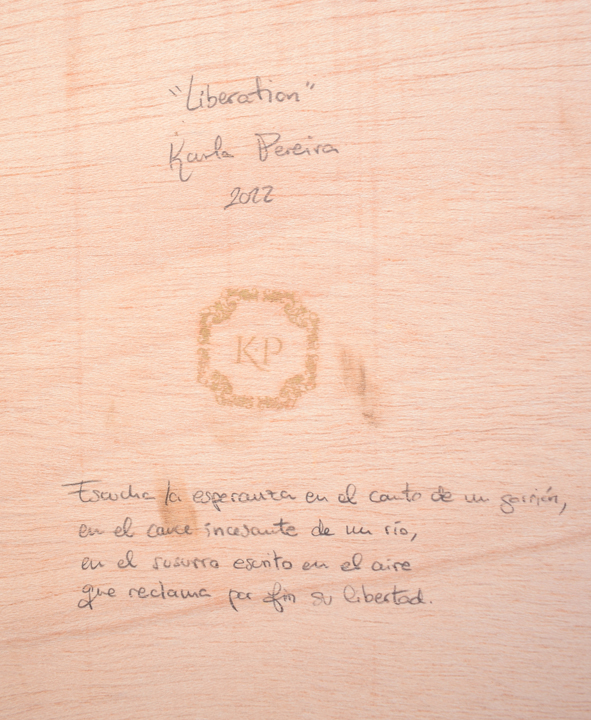 "Liberation"
Karla Pereira
2022
K·P
Escucha la esperanza en el canto de un gorrión,
en el cauce incesante de un río,
en el susurro escrito en el aire
que reclama por fin su libertad.